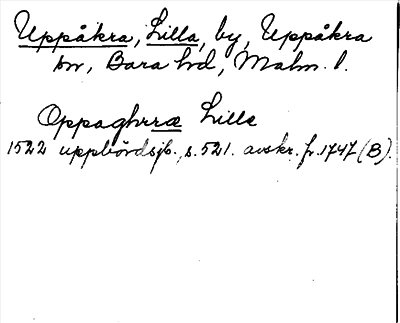 Uppåkra, Lilla, by, Uppåkra
sn, Bara hd, Malm. l.
Oppaghræ Lille
1522 uppbördsjb., s. 521. avskr. fr. 1747 (B).